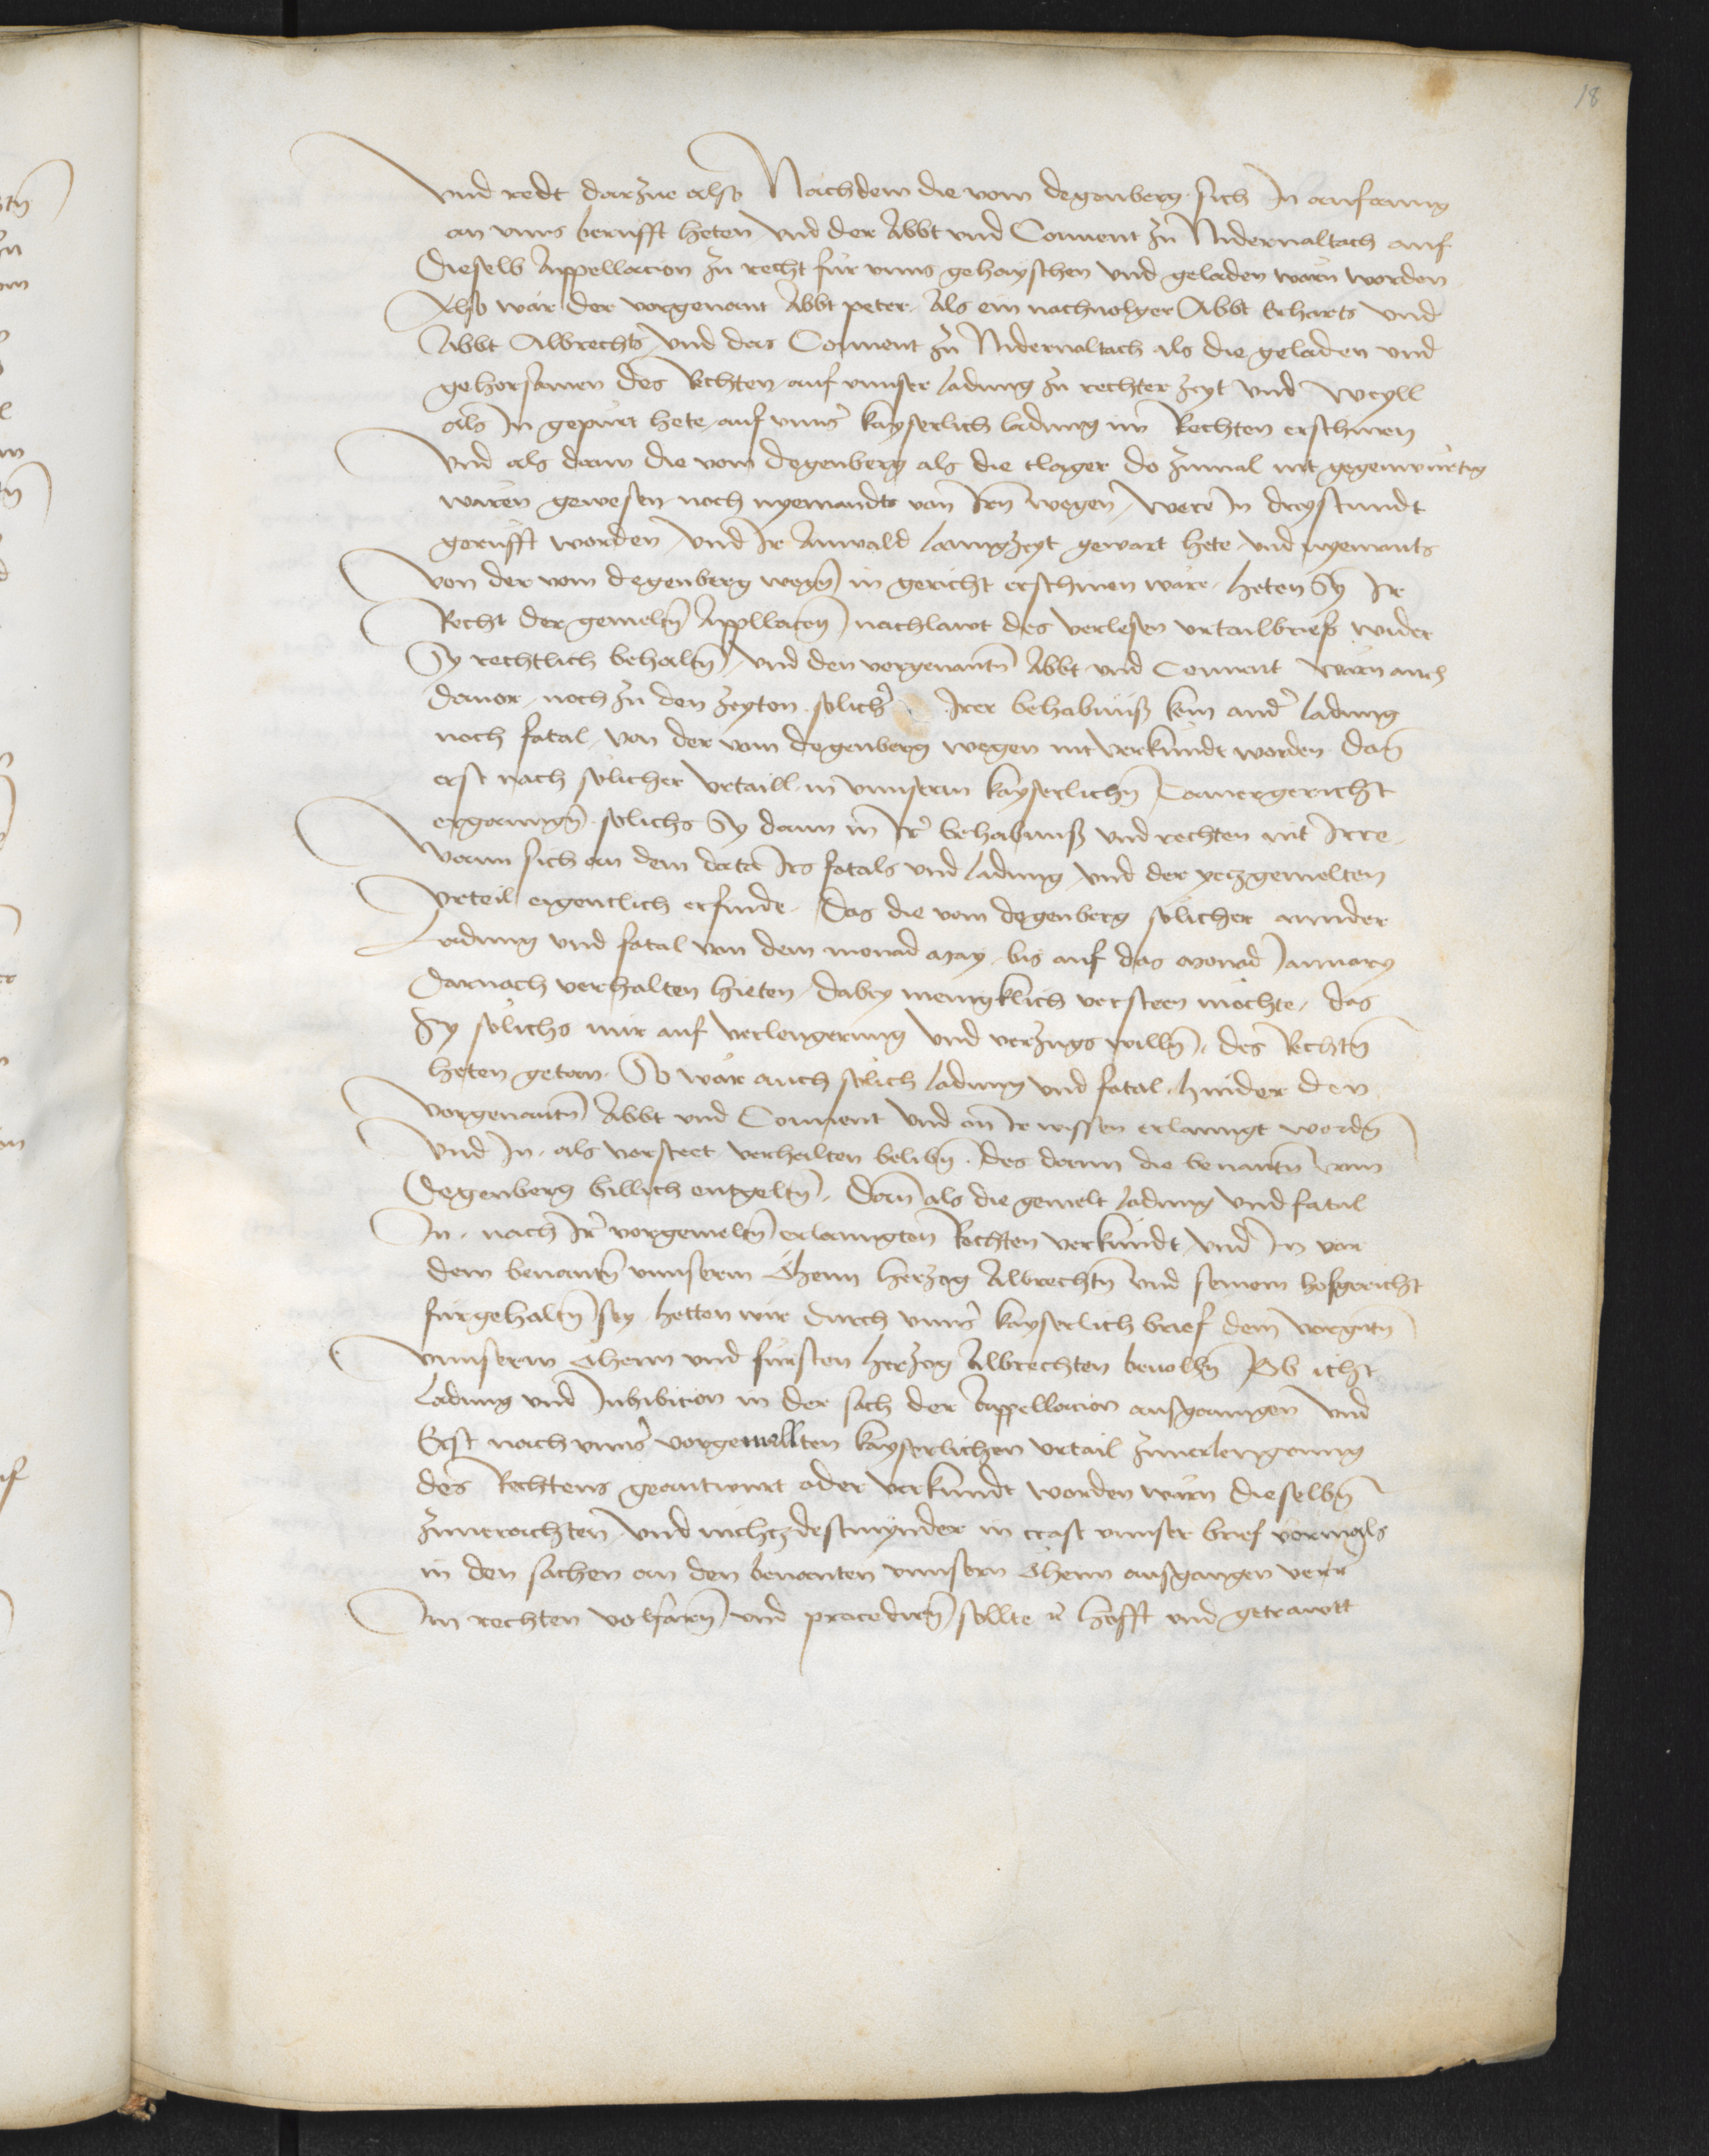 18
vnd redt darzue also Nachdem die vom degenberg sich In anfanng
an vnns berufft heten vnd der Abbt vnd Conuent zu Nidernaltach auf
Dieselb Appellacion zu recht fur vnns gehayschen vnd geladen wärn worden
Also wär der vorgenant Abbt peter Als ein nachuolger Abbt Erharts vnd
Abbt Albrechts vnd das Conuent zu Nidernaltach als die geladen vnd
gehorsamen des Rechten auf vnnser ladung zu rechter zeyt vnd weyll
als In gepürt hete auf vnns kayserlich ladung im Rechten erschinen
vnd als dann die vom degenberg als die clager do zumal nit gegenwürtig
wären gewesen noch nyemandts von Irn wegen were In dreystundt
gerufft worden vnd Ir Anwald lanngzeyt gewart hete vnd nyemants
von der vom degenberg wegn in gericht erschinen wäre heten Sy Ir
Recht der gemeltn Appllacon nachlawt des verlesen vrtailbriefs wider
Sy rechtlich behaltn vnd den vorgenantn Abbt vnd Conuent wärn auch
dauor noch zu den zeyten solicher Irer behabnüß kein ander ladung
noch fatal von der vom degenberg wegen nit verkündt worden dan
erst nach sölicher vrtaill in vnnserm kayserlichn Camergericht
ergangn solichs Sy dann in Ir behabnuß vnd rechten nit Irre
wann sich an dem data Irs fatals vnd ladung vnd der yetzgemelten
vrteil eigentlich erfinde das die vom degenberg sölicher annder
Ladung vnd fatal von dem monad may bis auf das monad January
darnach verhalten hieten dabey menigklich versteen möchte das
Sy sölichs nür auf verlengerung vnd verzugs willn des Rechtn
heten getan So wär auch sölich ladung vnd fatal hinder den
vorgenantn Abbt vnd Conuent vnd on Ir wissen erlanngt wordn
vnd In als vorsteet verhalten belibn des dann die benantn vom
Degenberg billich entgeltn Dann als die gemelt ladung vnd fatal
In nach Ir vorgemeltn erlanngten Rechten verkündt vnd In von
dem benantn vnnserm Öhem herzog Albrechtn vnd seinem hofgericht
fürgehaltn sey hetten wir durch vnns kayserlich brief dem vorgntn
vnnserm Öhem vnd fürsten herzog Albrechten beuolhn Ob icht
ladung vnd Inhibicion in der sach der Appellacion ausganngen vnd
Erst nach vnns vorgemellten kayserlichen vrtail zuuerlengerung
des Rechtens geantwurt oder verkündt worden wärn dieselbn
zuuerachten vnd nichtzdestmynder in crafft vnnser brief vormals
in den sachen an den benanten vnnsern Öhem ausgangen verr
Im rechten volfarn vnd procedirn sollte vnd hofft vnd getrawtt